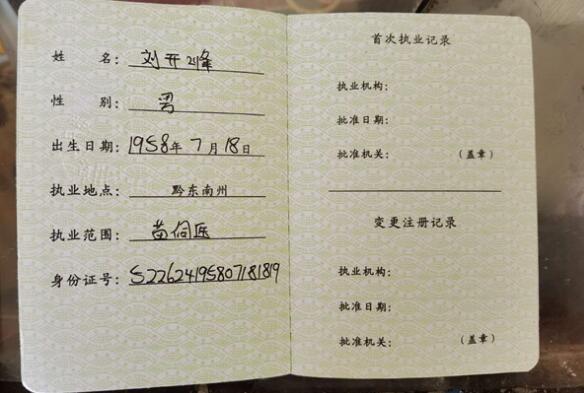 姓 名：刘开峰
性 别：男
出生日期：1958年7月18日
执业地点：黔东南州
执业范围：苗侗医
身份证号：522624195807181819
首次执业记录
执业机构：
批准日期：
批准机关： （盖章）
变更注册记录
执业机构：
批准日期：
批准机关： （盖章）